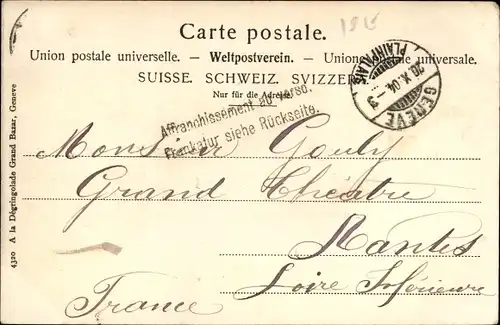 1515
Carte postale.
Union postale universelle. — Weltpostverein. — Unione postale universale.
SUISSE. SCHWEIZ. SVIZZERA.
Nur für die Adresse.
GENÈVE
PLAINPALAIS
20.X.04.-3
Affranchissement au verso.
Frankatur siehe Rückseite.
Monsieur Gouly
Grand Théâtre
Nantes
Loire Inférieure
France
4320 A la Dégringolade Grand Bazar, Geneve